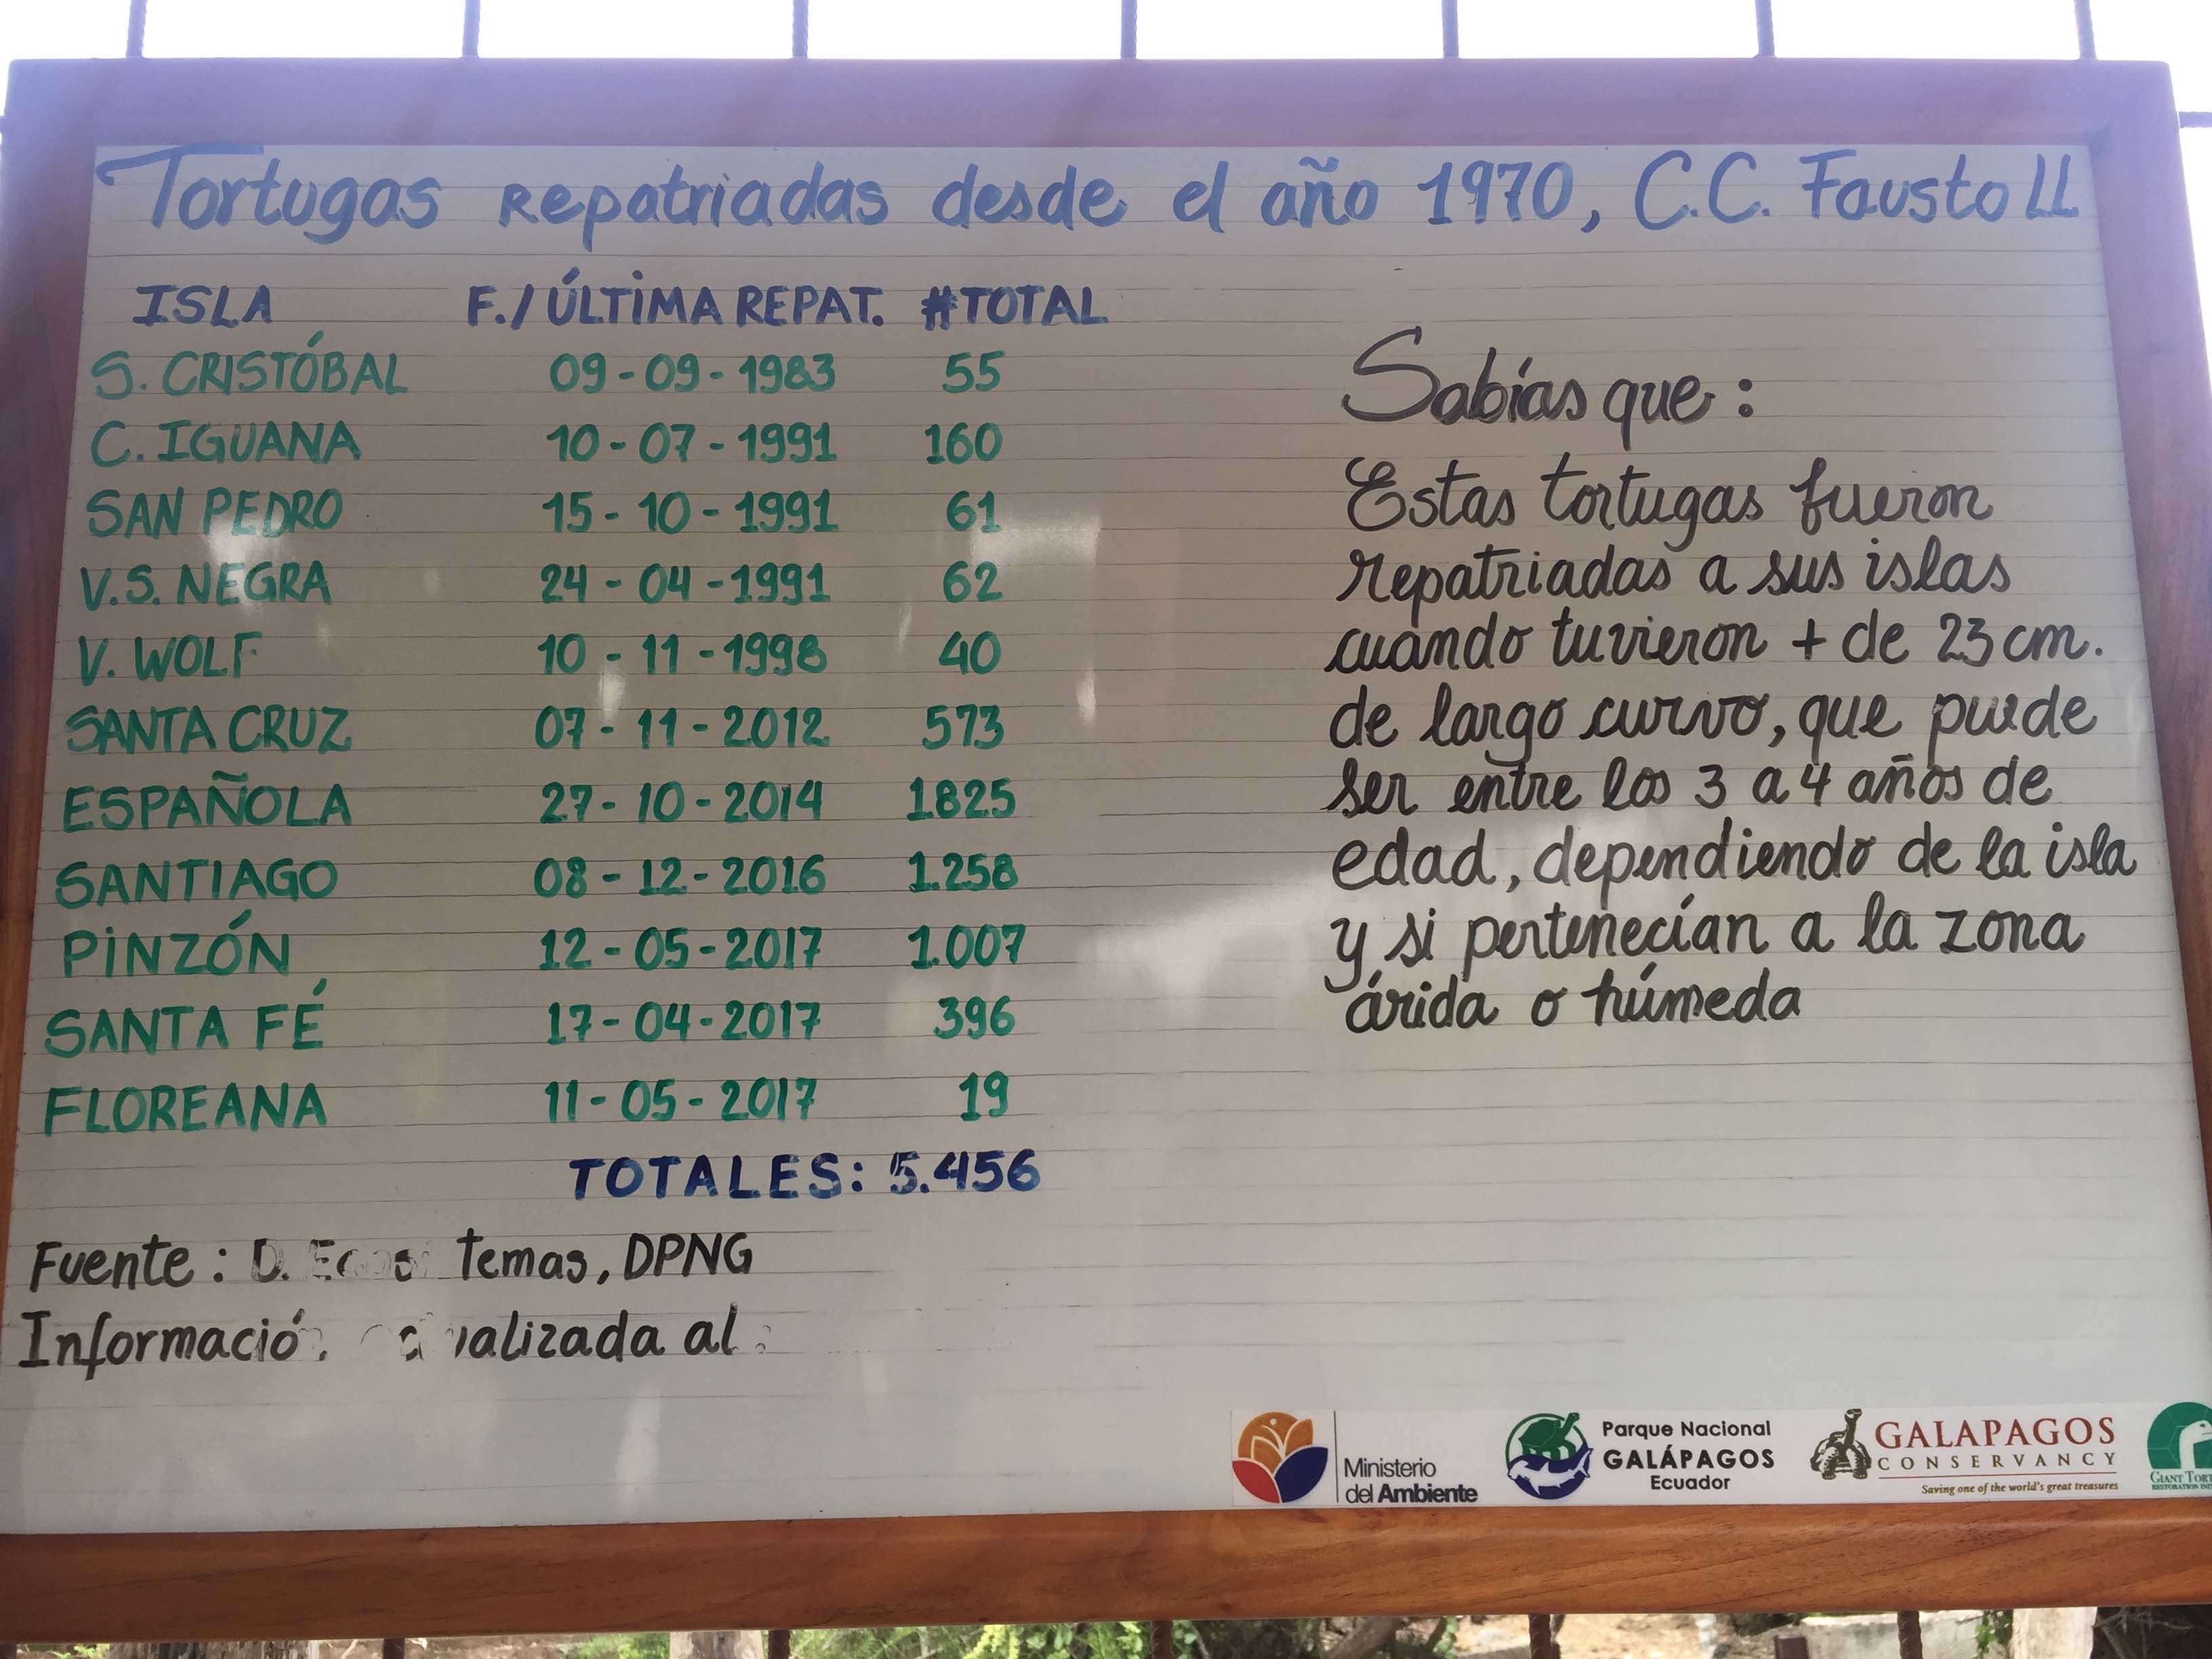 Tortugas Repatriadas desde el año 1970, C.C. Fausto LL
ISLA F./ÚLTIMA REPAT. #TOTAL
S. CRISTÓBAL 09-09-1983 55
C. IGUANA 10-07-1991 160
SAN PEDRO 15-10-1991 61
V.S. NEGRA 24-04-1991 62
V. WOLF 10-11-1998 40
SANTA CRUZ 07-11-2012 573
ESPAÑOLA 27-10-2014 1825
SANTIAGO 08-12-2016 1.258
PINZÓN 12-05-2017 1.007
SANTA FÉ 17-04-2017 396
FLOREANA 11-05-2017 19
TOTALES: 5.456
Fuente: D. temas, DPNG
al:
Sabías que:
Estas tortugas fueron
repatriadas a sus islas
cuándo tuvieron + de 23 cm.
de largo curvo, que puede
ser entre los 3 a 4 años de
edad, dependiendo de la isla
y si pertenecían a la zona
árida o húmeda
Ministerio
del Ambiente
Parque Nacional
GALÁPAGOS
Ecuador
GALAPAGOS
CONSERVANCY
Saving one of the world's great treasures
GIANT